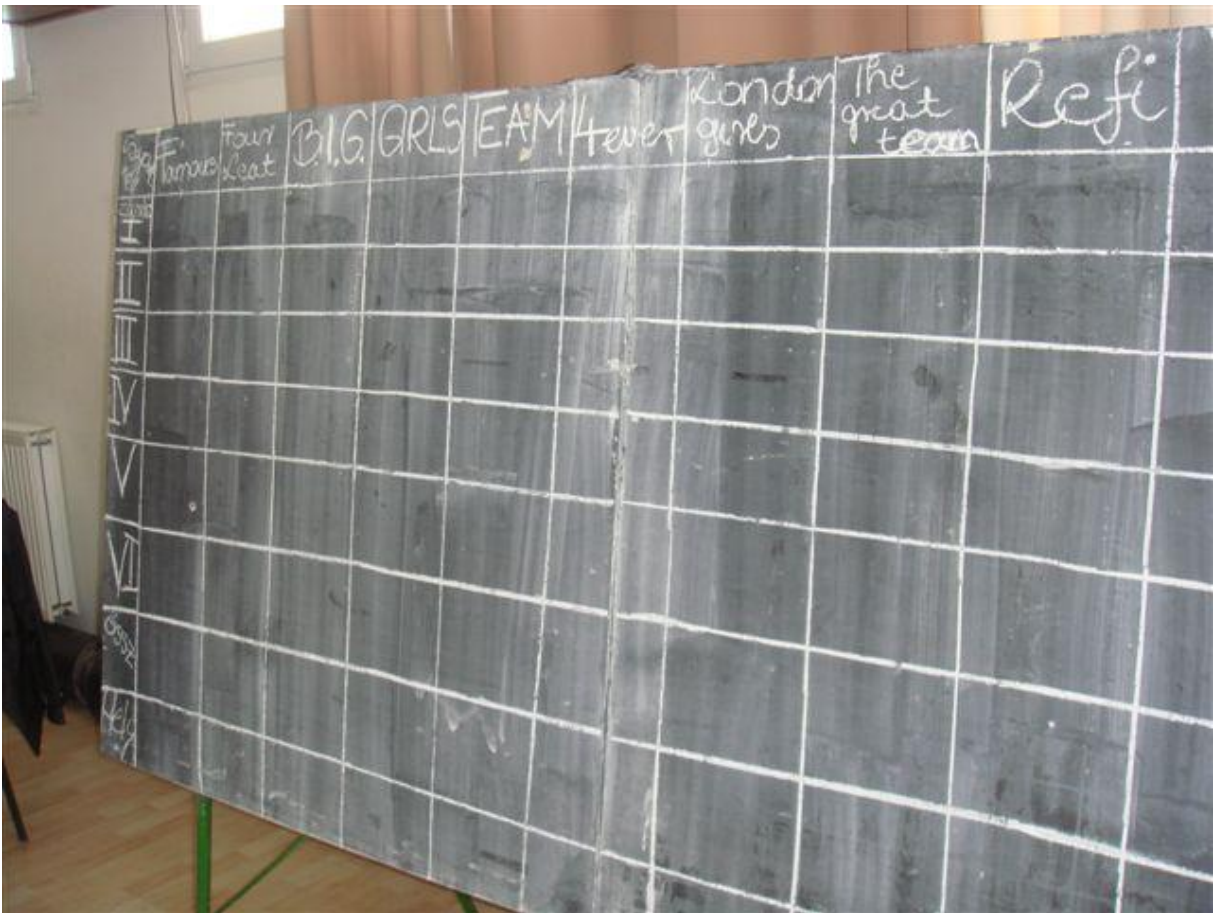 Famous
Four
Leat
B.I.G.
GRLS
TEAM
4ever
London
girls
The
great
team
Refi
I
II
III
IV
V
VI
össz
Hely